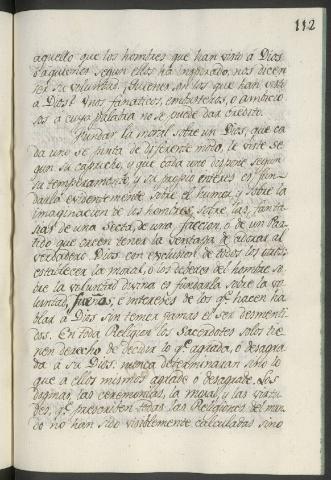 112
aquello que los hombres que han visto a Dios
o aquienes segun ellos ha inspirado, nos dicen
ser su voluntad. ¿Quienes son los que han visto
a Dios? Unos fanaticos, embusteros, o ambicio
sos a cuya palabra no se puede dar credito.
Fundar la moral sobre un Dios, que ca
da uno se pinta de diferente modo, le viste se
gun su capricho, y que cada uno dispone segun
su temperamento y su propio interes es fun-
darla evidentemente sobre el humor y sobre la
imaginacion de los hombres, sobre las fanta-
sias de una secta, de una faccion, o de un Par-
tido que creen tener la ventaja de adorar al
verdadero Dios con exclusion de todos los otros
establecer la moral, o los deberes del hombre so
bre la voluntad divina es fundarla sobre la vo
luntad, e intereses de los qe hacen ha
blar a Dios sin temer jamas el ser desmenti
dos. En toda Religion los Sacerdotes solos tie
nen derecho de decidir lo qe agrada, o desagra
da a su Dios: nunca determinaran sino lo
que a ellos mismos agrade o desagrade. Los
dogmas, las ceremonias, la moral, y las virtu
des, qe prescriben todas las Religiones del mun
do no han sido visiblemente calculadas sino